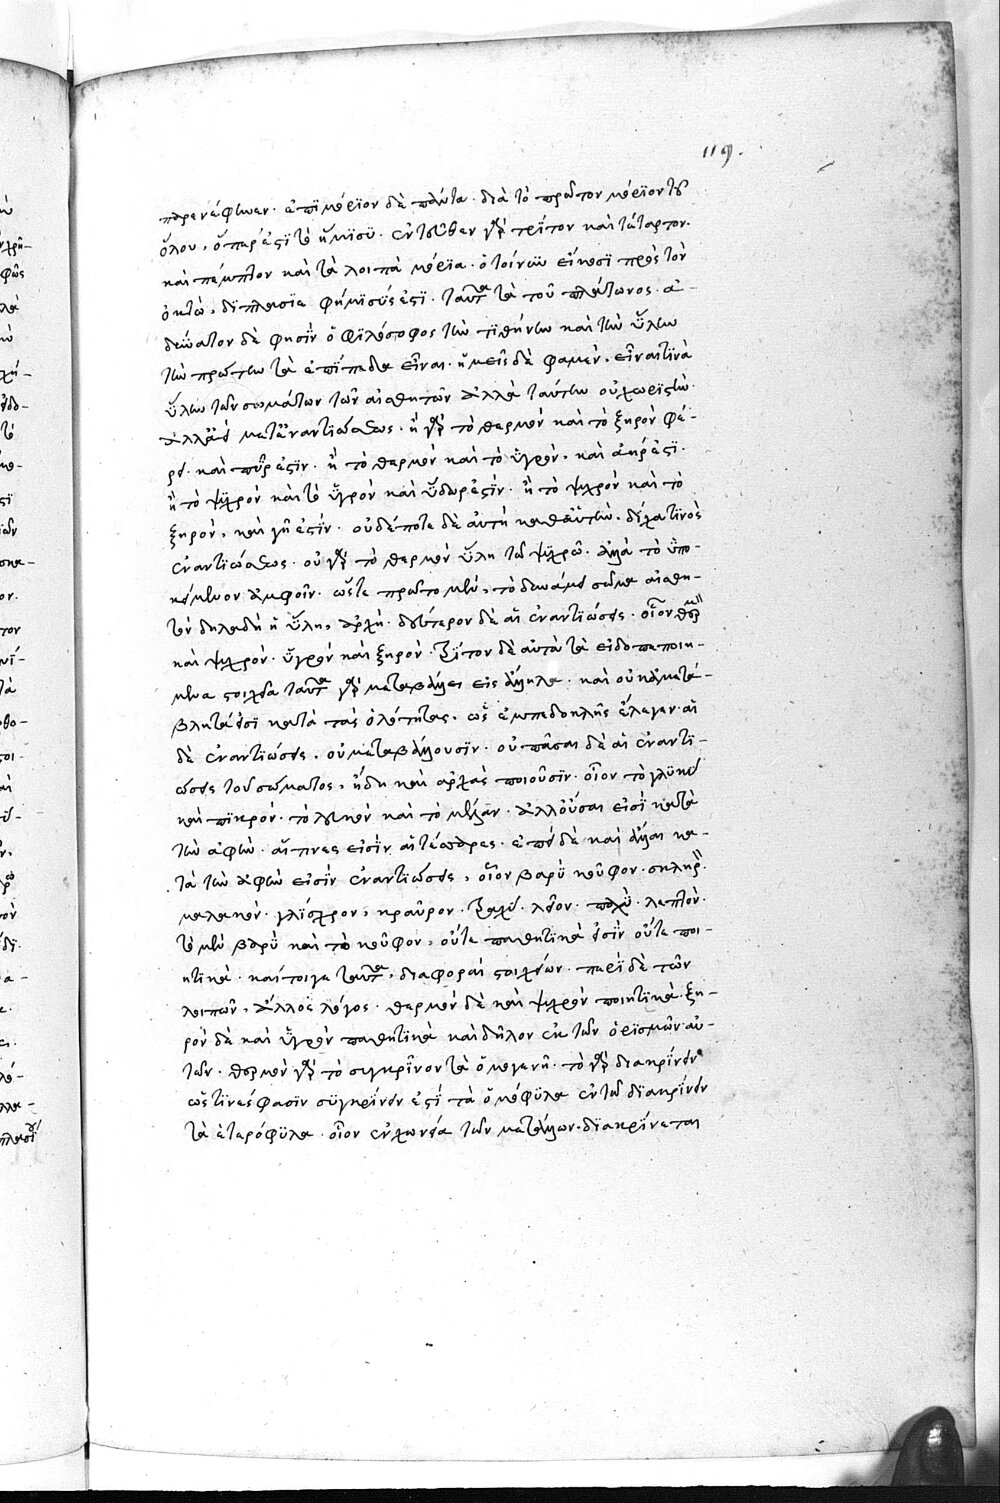 119.
παρενέφηνεν· ἐπιμόριον δὲ πάντα· διὰ τὸ πρῶτον μόριον τοῦ
ὅλου, ὅπερ ἐστὶ τὸ ἥμισυ. ἐντεῦθεν γὰρ τρίτον καὶ τέταρτον·
καὶ πέμπτον καὶ τὰ λοιπὰ μόρια· ὁ τοίνυν εἴκοσι πρὸς τὸν
ὀκτώ, διπλασιε φήμισύς ἐστι· ταῦτα τὰ τοῦ πλάτωνος· ἀ-
δύνατον δὲ φησὶν ὁ φιλόσοφος τὴν τιθήνην καὶ τὴν ὕλην
τὴν πρώτην τὰ ἐπίπεδα εἶναι· ἡμεῖς δὲ φαμὲν, εἶναι τινὰ
ὕλην τῶν σωμάτων τῶν αἰσθητῶν ἀλλὰ ταύτην οὐ χωριστὴν·
ἀλλ' ἀεὶ μετ' ἐναντιώσεως· ἢ γὰρ τὸ θερμὸν καὶ τὸ ξηρὸν φέ-
ρει· καὶ πῦρ ἐστιν· ἢ τὸ θερμὸν καὶ τὸ ὑγρὸν, καὶ ἀήρ ἐστι·
ἢ τὸ ψυχρὸν καὶ τὸ ὑγρὸν καὶ ὕδωρ ἐστίν· ἢ τὸ ψυχρὸν καὶ τὸ
ξηρὸν, καὶ γῆ ἐστίν· οὐδέποτε δὲ αὐτὴ καθ' αὑτὴν, δίχα τινὸς
ἐναντιώσεως· οὐ γὰρ τὸ θερμὸν ὕλη τῷ ψυχρῷ· ἀλλὰ τὸ ὑπο-
κείμενον ἀμφοῖν· ὥστε πρῶτο μὲν, τὸ δυνάμει σῶμα αἰσθη-
τὸν δηλαδὴ ἡ ὕλη, ἀρχή· δεύτερον δὲ αἱ ἐναντιώσεις· οἷον θερμὸν
καὶ ψυχρὸν· ὑγρὸν καὶ ξηρὸν· τρίτον δὲ αὐτὰ τὰ εἰδοπεποιη-
μένα στοιχεῖα ταῦτα γὰρ μεταβάλλει εἰς ἄλληλα· καὶ οὐκ ἀμετά-
βλητά εἰσι κατὰ τὰς ὁλότητας, ὡς ἐμπεδοκλῆς ἔλεγεν· αἱ
δὲ ἐναντιώσεις, οὐ μεταβάλλουσιν· οὐ πᾶσαι δὲ αἱ ἐναντι-
ώσεις τοῦ σώματος, ἤδη καὶ ἀρχὰς ποιοῦσιν· οἷον τὸ γλυκὺ
καὶ πικρόν· τὸ λευκὸν καὶ τὸ μέλαν· ἀλλ' ὅσαι εἰσὶ κατὰ
τὴν ἁφὴν· αἵτινες εἰσὶν αἱ τέσσαρες· ἐπεὶ δὲ καὶ ἄλλαι κα-
τὰ τὴν ἁφὴν εἰσὶν ἐναντιώσεις, οἷον βαρὺ κοῦφον· σκληρὸν·
μαλακὸν· γλίσχρον, κραῦρον· τραχὺ· λεῖον· παχὺ· λεπτὸν·
τὸ μὲν βαρὺ καὶ τὸ κοῦφον, οὔτε παθητικὰ εἰσὶν οὔτε ποι-
ητικὰ· καίτοιγε ταῦτα, διαφοραὶ στοιχείων· περὶ δὲ τῶν
λοιπῶν, ἄλλος λόγος· θερμὸν δὲ καὶ ψυχρὸν ποιητικὰ· ξη-
ρὸν δὲ καὶ ὑγρὸν παθητικὰ καὶ δῆλον ἐκ τῶν ὁρισμῶν αὐ-
τῶν· θερμὸν γὰρ τὸ συγκρῖνον τὰ ὁμογενῆ· τὸ γὰρ διακρίνειν
ὥς τινες φασὶν συγκρίνειν ἐστὶ τὰ ὁμόφυλα ἐν τῷ διακρίνειν
τὰ ἑτερόφυλα· οἷον ἐν χωνεία τῶν μετάλλων· διακρίνεται